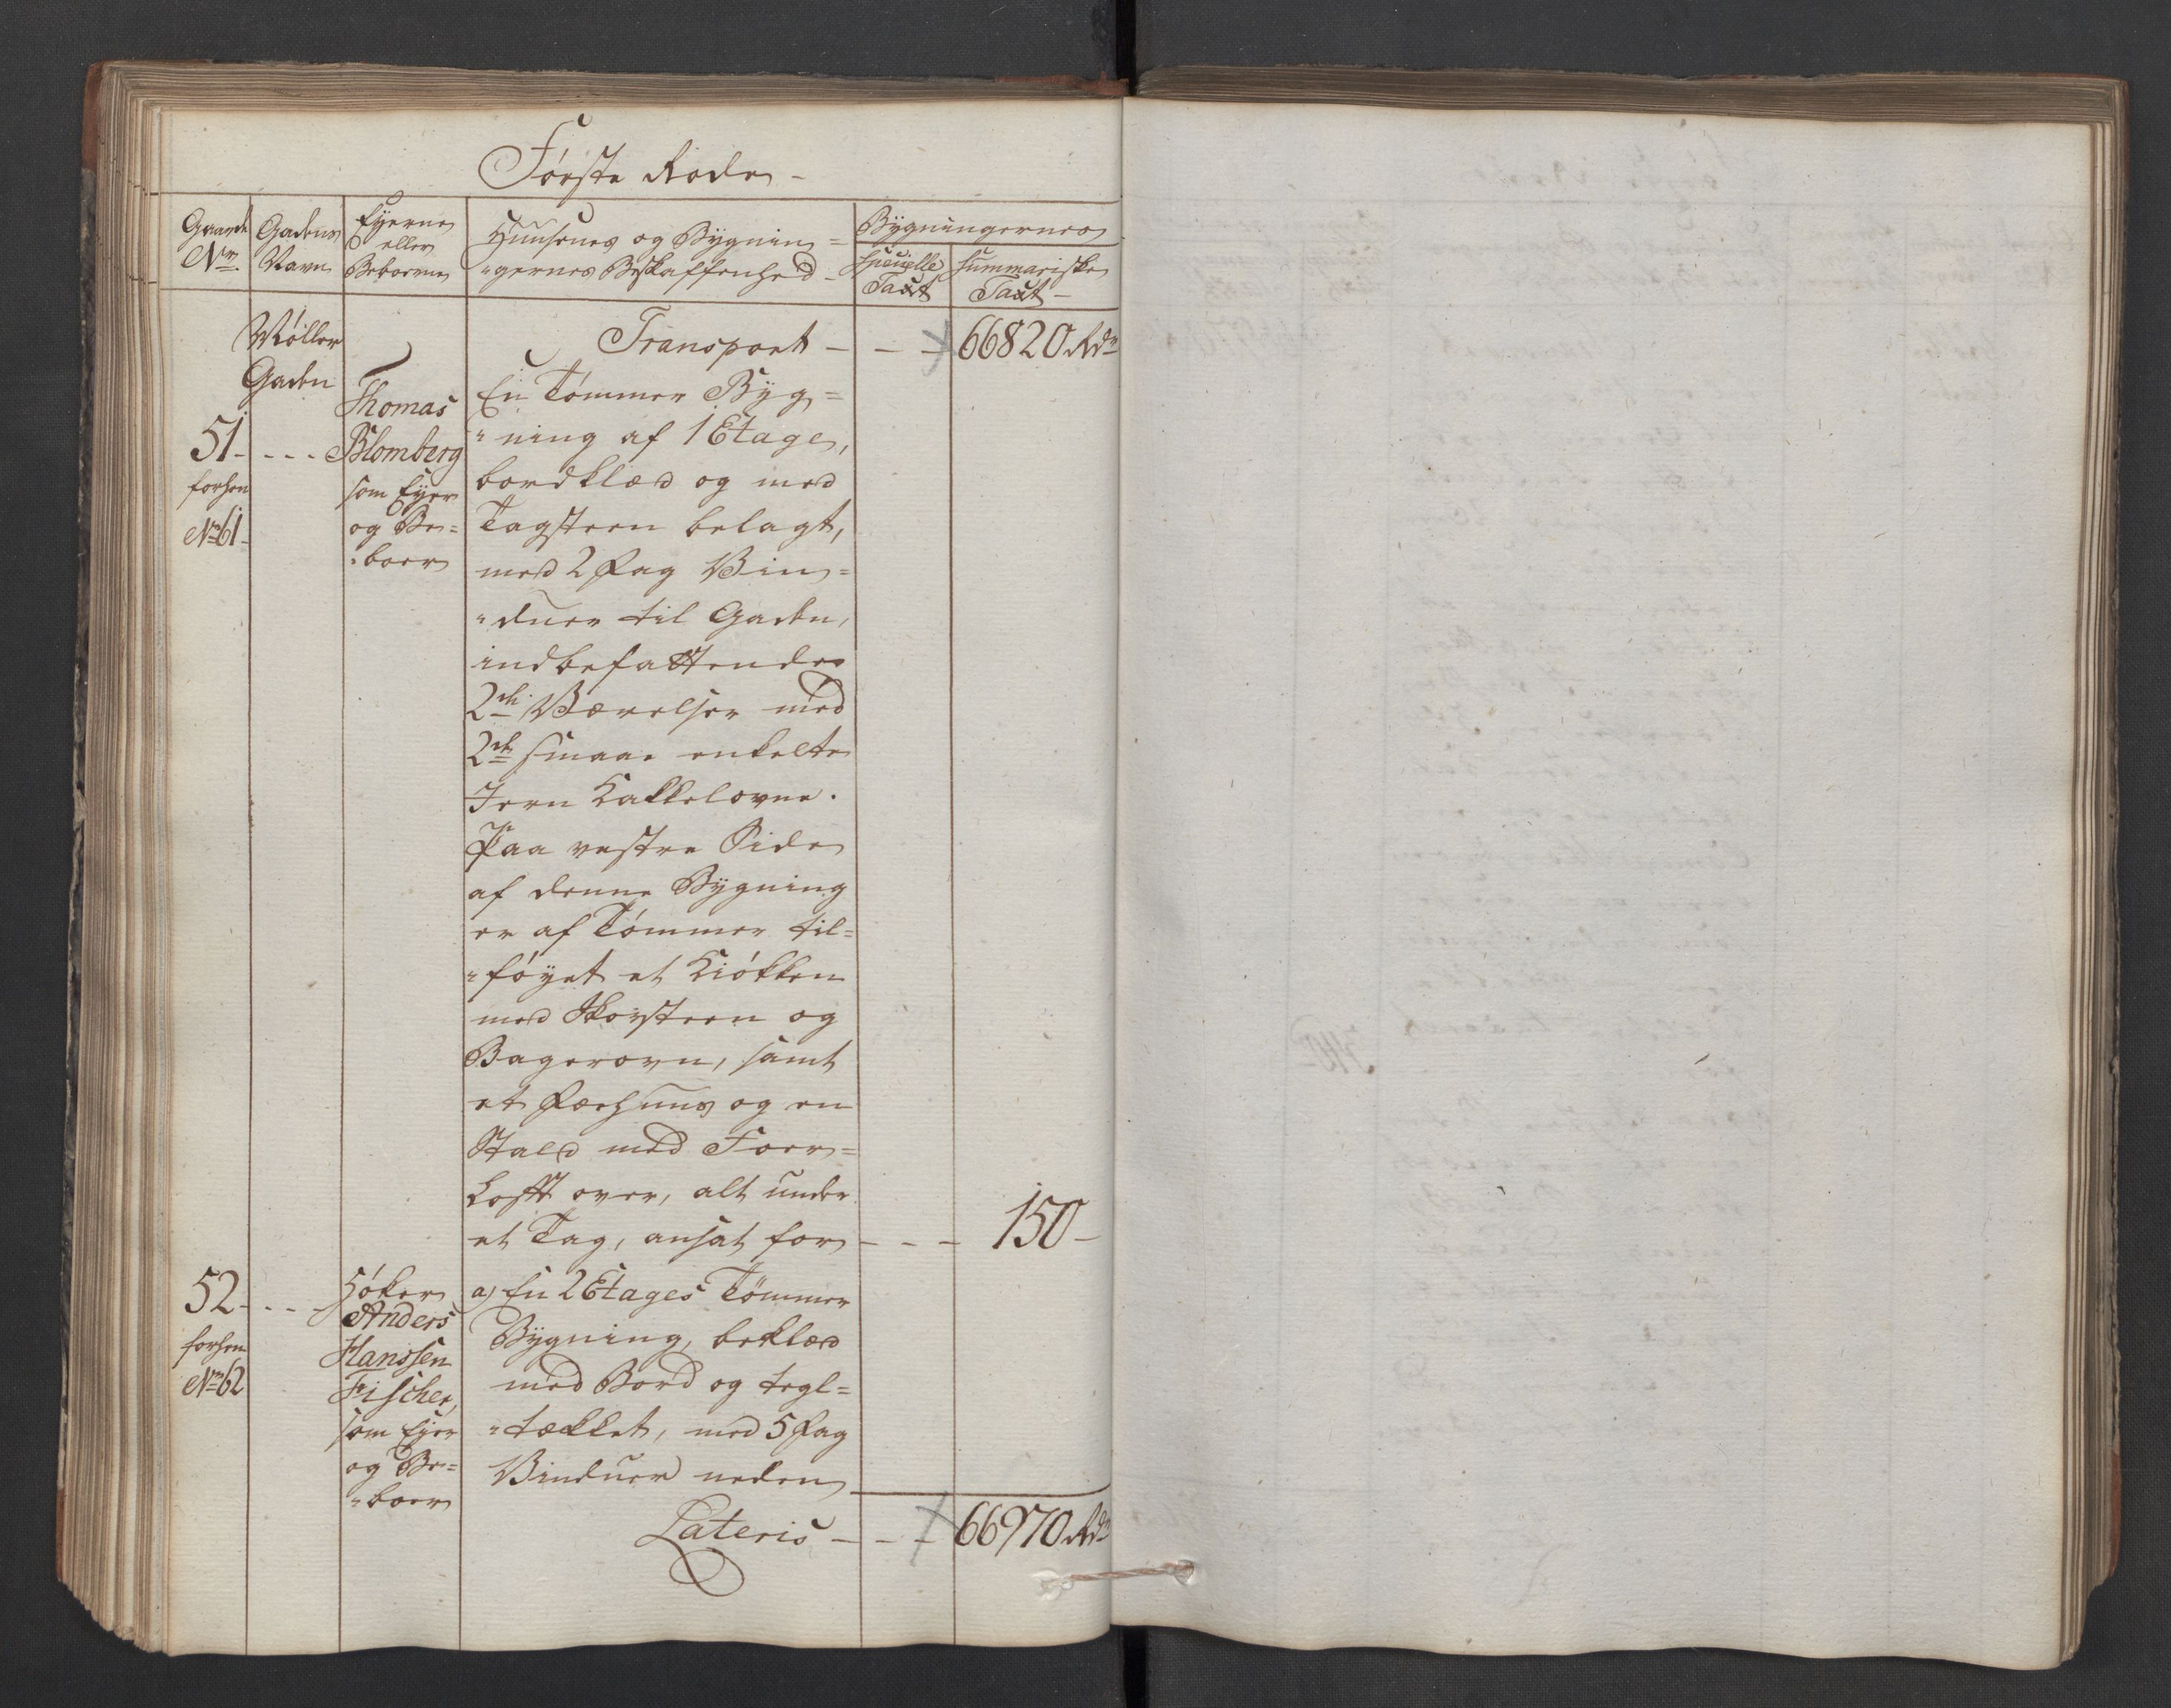 Første Rode
Gaarde Nr.
Gadens Navn
Eyerne eller Beboerne
Huusenes og Bygnin=
"gernes Beskaffenhed
Bygningernes
specielle Taxt
summariske Taxt
Møller
Gaden
Transport - - - 66820 Rdr
51 - - -
forhen
No 61
Thomas
Blomberg
som Eyer
og Be=
"boer
En Tømmer Byg=
"ning af 1 Etage,
bordklæd og med
Tagsteen belagt,
med 2 Fag Vin=
"duer til Gaden,
indbefattende
2de Værelser med
2de smaae enkelte
Jern Kakkelovne.
Paa vestre Side
af denne Bygning
er af Tømmer til=
"føyet et Kiøkken
med Skorsteen og
Bagerovn, samt
et Fæehuus og en
Stald med Foer=
Loftt over, alt under
et Tag, ansat for - - - 150 -
52 - - -
forhen
No 62
Høker
Anders
Hanssen
Fischer,
som Eyer
og Be=
"boer
a) En 2 Etages Tømmer
Bygning, beklæd
med Bord og tegl=
"tækket, med 5 Fag
Vinduer neden
Lateris - - - 66970 Rdr